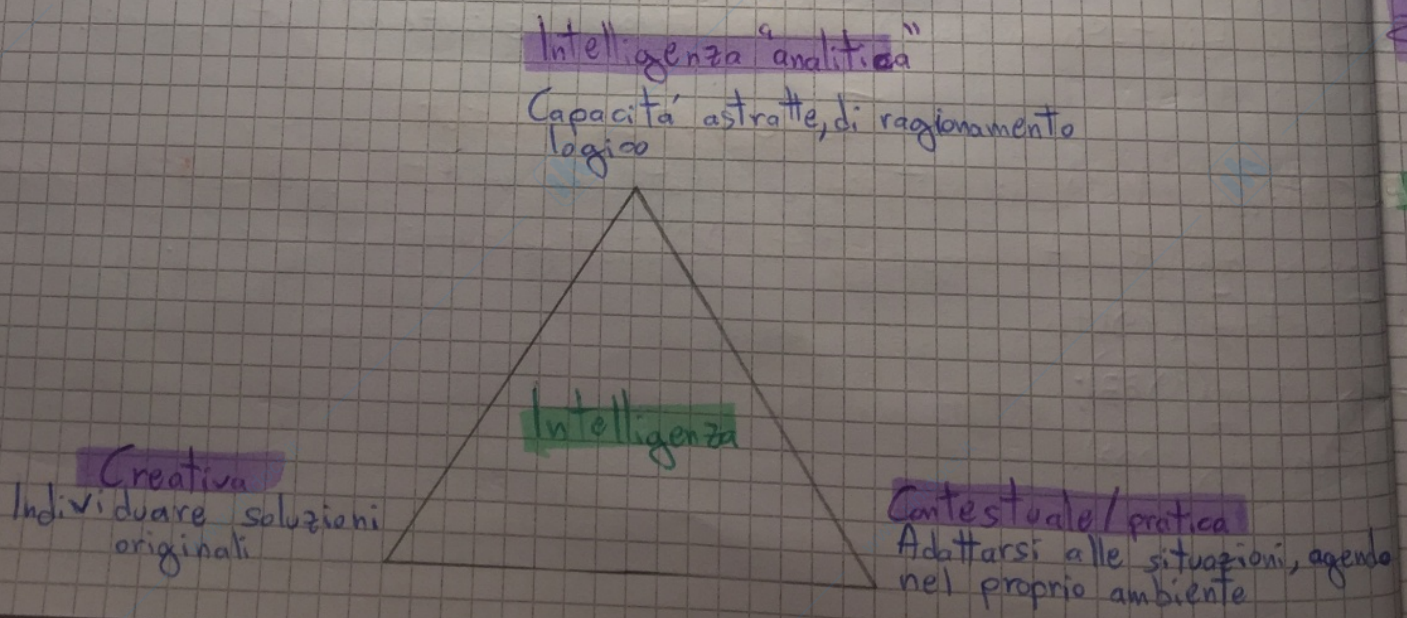 Intelligenza "analitica"
Capacitá astratte, di ragionamento
logico
Intelligenza
Creativa
Individuare soluzioni
originali
Contestuale/pratica
Adattarsi alle situazioni, agendo
nel proprio ambiente